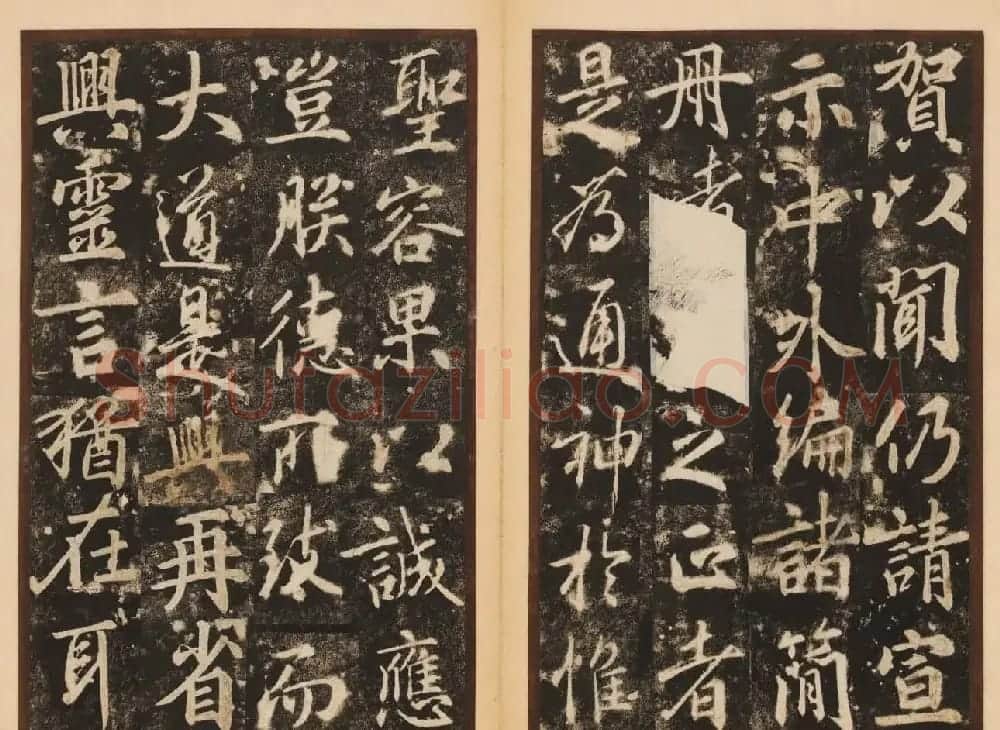 賀以聞仍請宣
示中外編諸簡
冊者之正者
是為通神於惟
聖容果以誠應
豈朕德所致而
大道興再省
興靈言猶在耳
Shufaziliao.COM